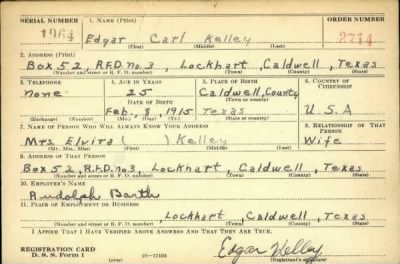 SERIAL NUMBER 1. NAME (Print) ORDER NUMBER
1964 Edgar Carl Kelley 2714
(First) (Middle) (Last)
2. ADDRESS (Print)
Box 52, R.F.D. no. 3, Lockhart, Caldwell, Texas
(Number and street or R. F. D. number) (Town) (County) (State)
3. TELEPHONE 4. AGE IN YEARS 5. PLACE OF BIRTH 6. COUNTRY OF CITIZENSHIP
none 25 Caldwell, County
DATE OF BIRTH (Town or county)
Feb., 8, 1915 Texas U.S.A
(Exchange) (Number) (Mo.) (Day) (Yr.) (State or country)
7. NAME OF PERSON WHO WILL ALWAYS KNOW YOUR ADDRESS 8. RELATIONSHIP OF THAT PERSON
Mrs. Elvira ( ) Kelley Wife
(Mr., Mrs., Miss) (First) (Middle) (Last)
9. ADDRESS OF THAT PERSON
Box 52, R.F.D. no 3, Lockhart, Caldwell, Texas
(Number and street or R. F. D. number) (Town) (County) (State)
10. EMPLOYER'S NAME
Rudolph Barth
11. PLACE OF EMPLOYMENT OR BUSINESS
Lockhart, Caldwell, Texas
(Number and street or R. F. D. number) (Town) (County) (State)
I AFFIRM THAT I HAVE VERIFIED ABOVE ANSWERS AND THAT THEY ARE TRUE.
REGISTRATION CARD
D. S. S. Form 1 Edgar Kelley
(Registrant's signature)